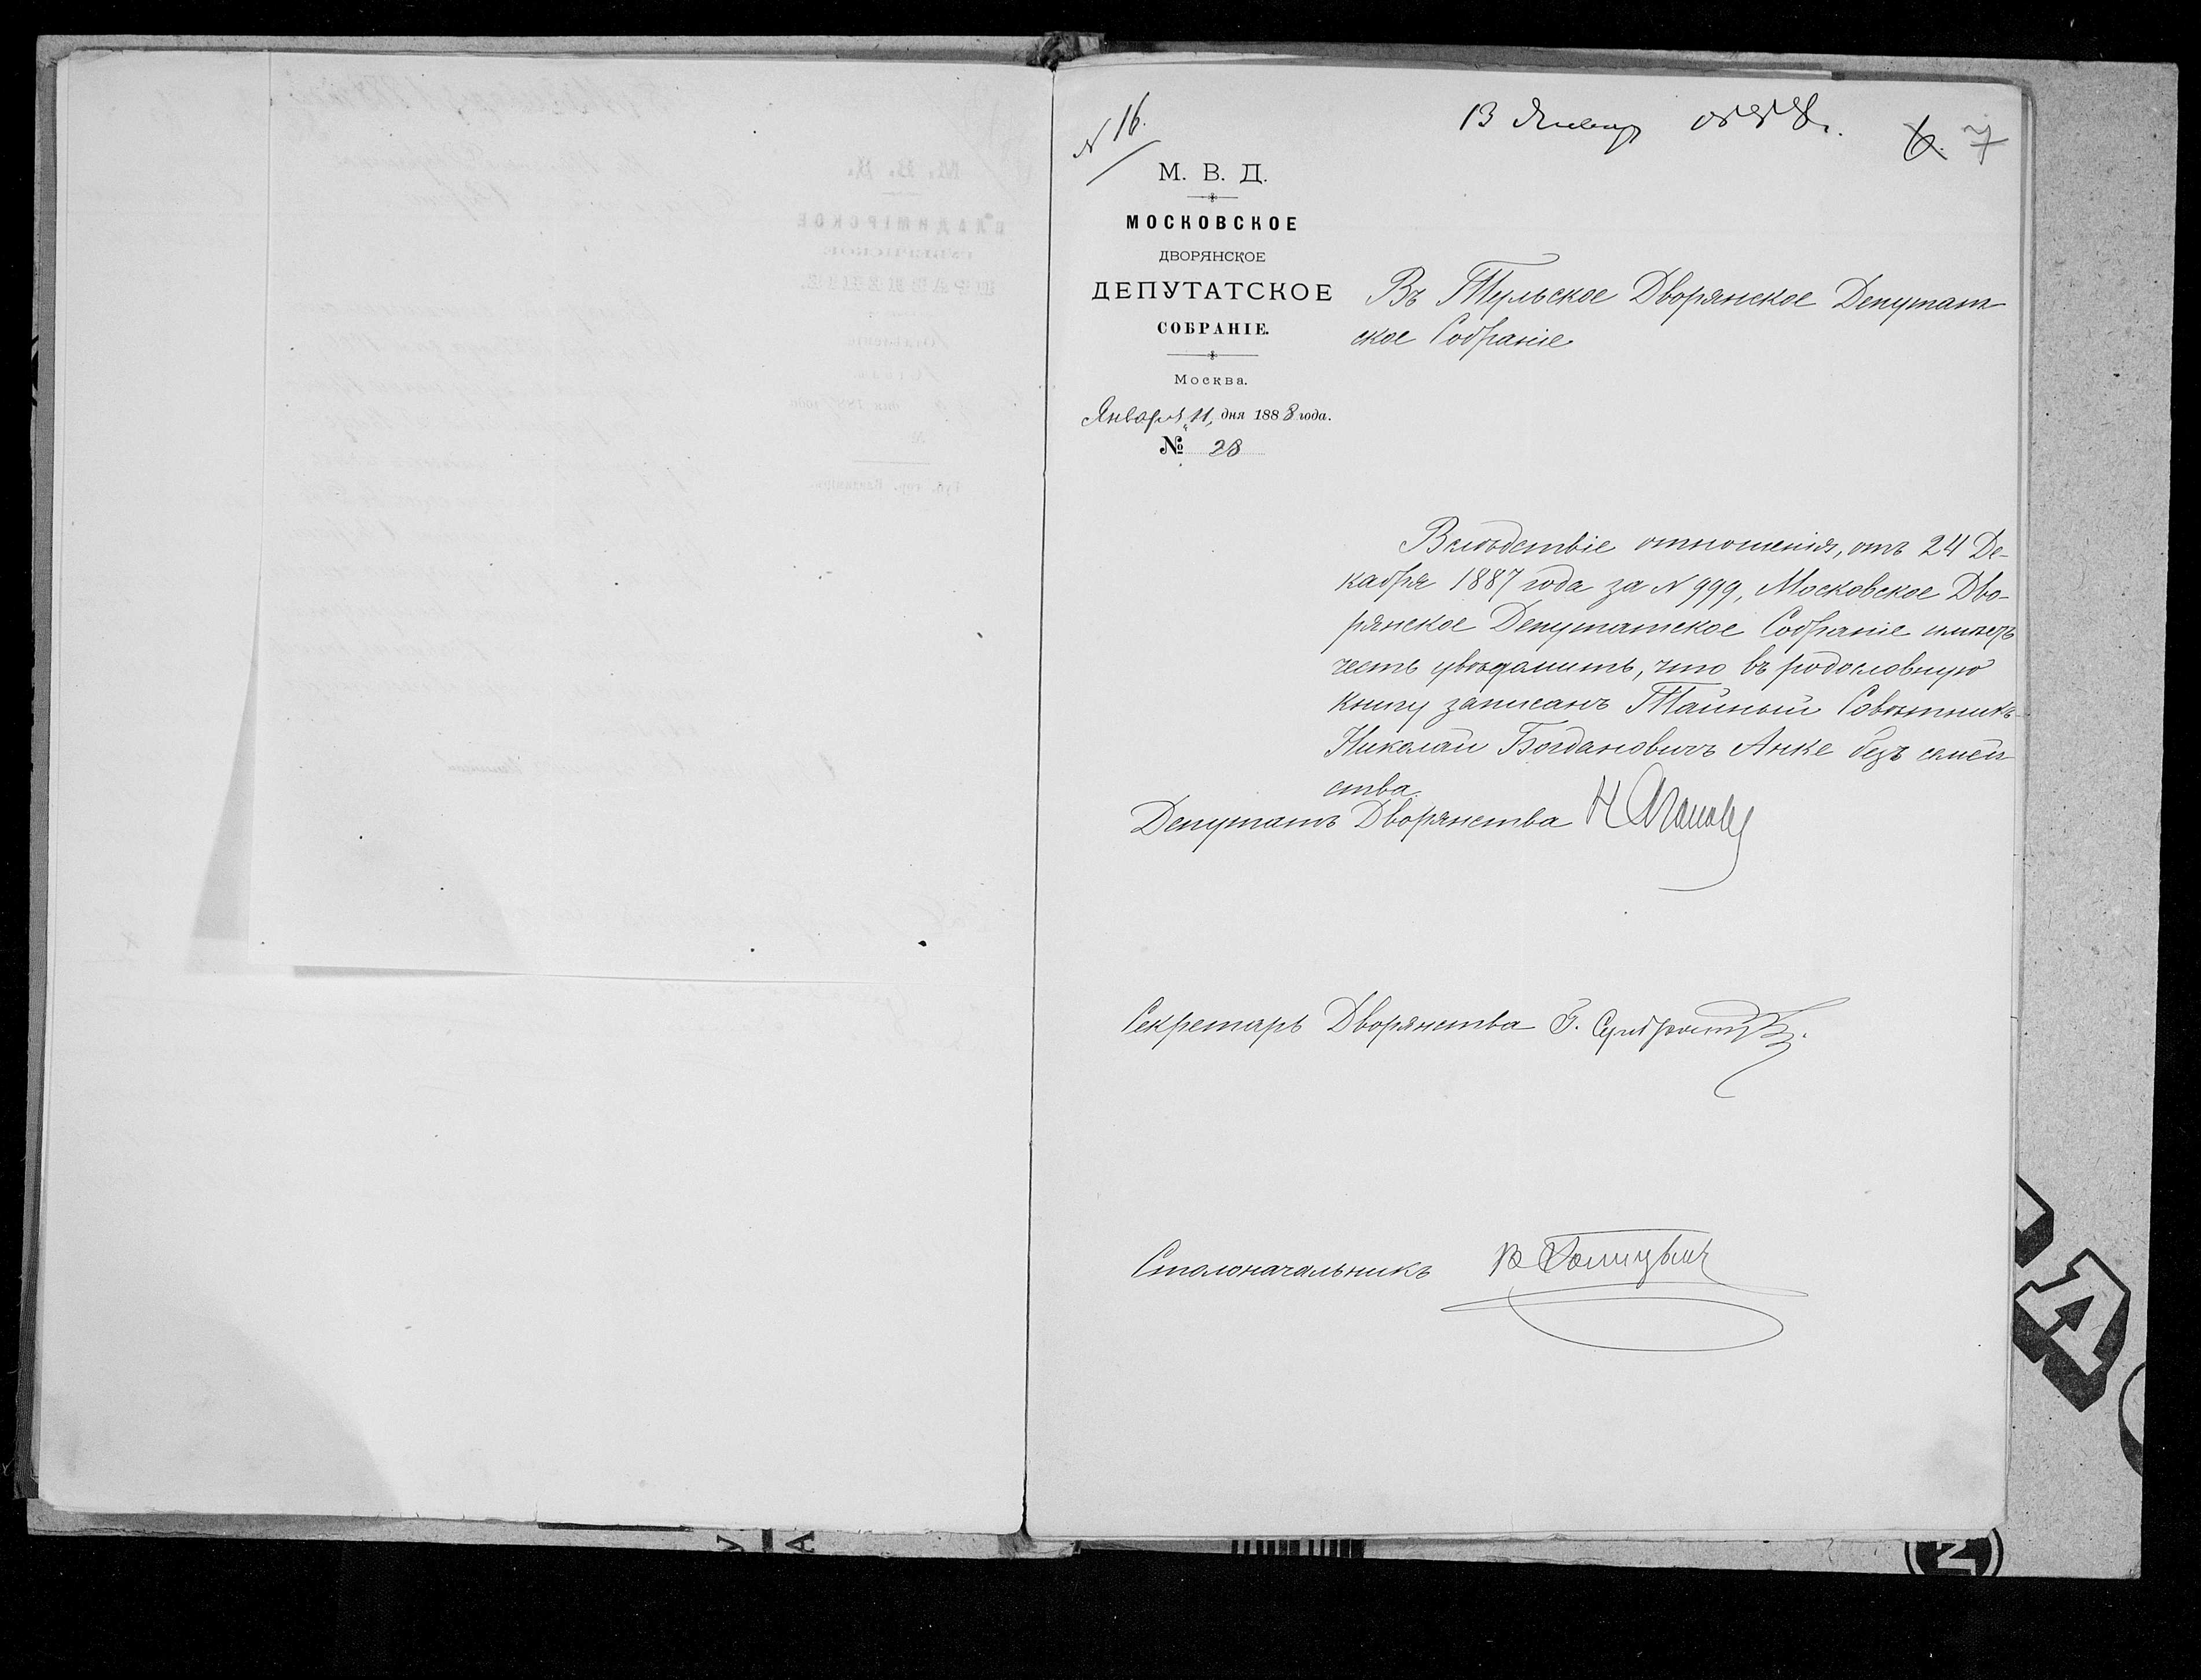 N 16.
13 Январ 1888 г.
6. 7
М. В. Д.
МОСКОВСКОЕ
ДВОРЯНСКОЕ
ДЕПУТАТСКОЕ
СОБРАНІЕ.
Москва.
Января 11 дня 1888 года.
№ 28
Въ Тульское Дворянское Депутат
ское Собраніе
Вслѣдствіе отношенія, отъ 24 Де-
кабря 1887 года за N 999, Московское Дво-
рянское Депутатское Собраніе имѣетъ
честь увѣдомить, что въ родословную
книгу записанъ Тайный Совѣтникъ
Николай Богдановичъ Анке безъ семей
ства.
Депутатъ Дворянства Н
Секретарь Дворянства
Столоначальникъ